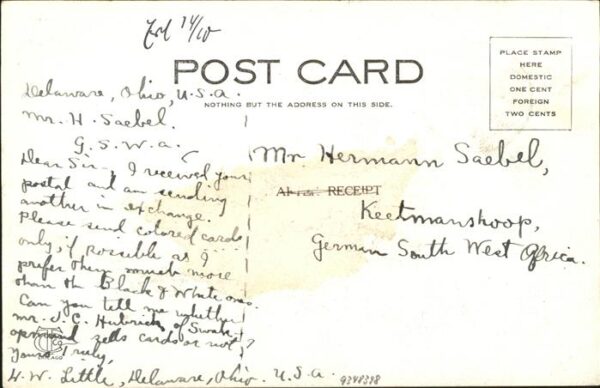 14/10
POST CARD
NOTHING BUT THE ADDRESS ON THIS SIDE.
PLACE STAMP
HERE
DOMESTIC
ONE CENT
FOREIGN
TWO CENTS
Delaware, Ohio, U.S.A.
Mr. H. Saebel.
G. S. W. a.
Dear Sir, I received your
postal and am sending
another in exchange.
Please send colored cards
only, if possible as I
prefer them much more
than the Black & White ones.
Can you tell me whether
Mr. J. C. Hubrich of Swakop
mund sells cards or not?
Yours Truly,
H. W. Little, Delaware, Ohio. U.S.A.
Mr Hermann Saebel,
RECEIPT
Keetmanshoop,
German South West Africa.
CHICAGO
9348398